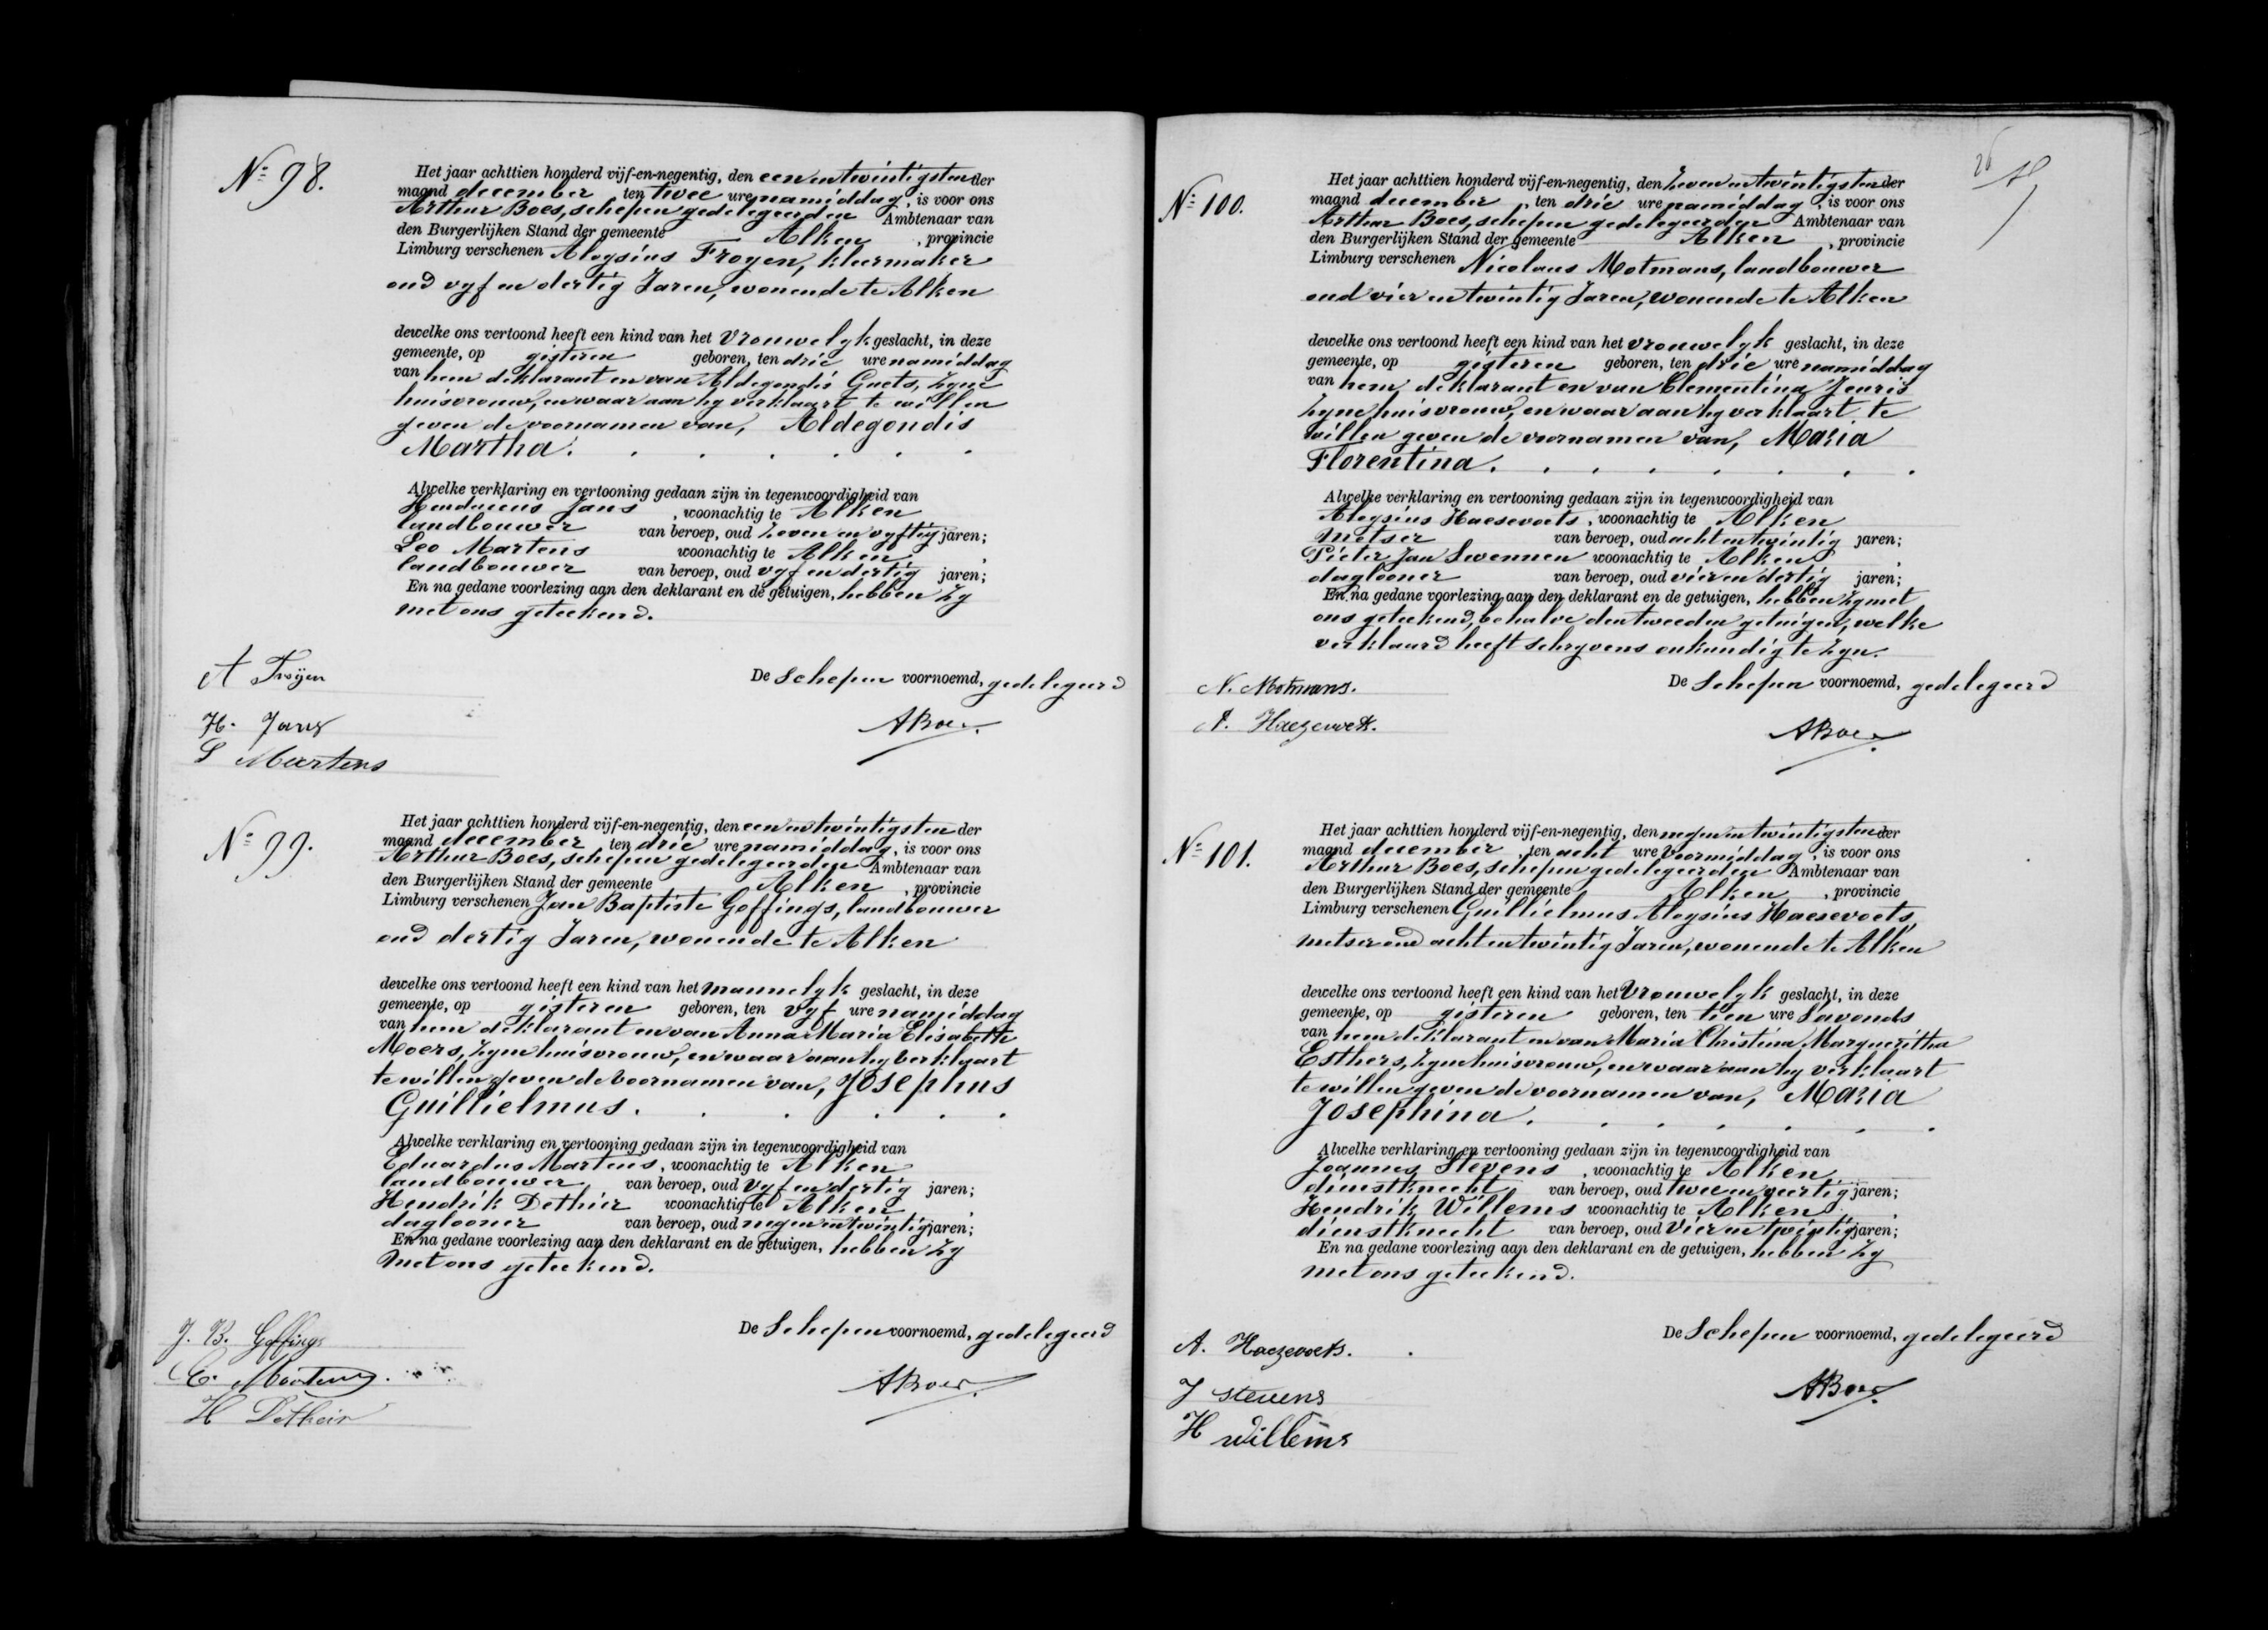 Nº 98.
Het jaar achttien honderd vijf-en-negentig, den een en twintigsten der
maand december ten twee ure namiddag, is voor ons
Arthur Boes, schepen gedelegeerden Ambtenaar van
den Burgerlijken Stand der gemeente Alken, provincie
Limburg verschenen Aloysius Froyen, kleermaker
oud vyf en dertig Jaren, wonende te Alken
dewelke ons vertoond heeft een kind van het vrouwelyk geslacht, in deze
gemeente, op gisteren geboren, ten drie ure namiddag
van hem deklarant en van Aldegondis Guets, zyne
huisvrouw, en waar aan hy verklaart te willen
geven de voornamen van, Aldegondis
Martha.
Alwelke verklaring en vertooning gedaan zijn in tegenwoordigheid van
Jans, woonachtig te Alken
landbouwer van beroep, oud zeven en vyftig jaren;
Leo Martens woonachtig te Alken,
landbouwer van beroep, oud vyf en dertig jaren;
En na gedane voorlezing aan den deklarant en de getuigen, hebben zy
met ons geteekend.
A Froÿen
De Schepen voornoemd, gedelegeerd
H. Jans
ABoes
L Martens
Nº 99.
Het jaar achttien honderd vijf-en-negentig, den een en twintigsten der
maand december ten drie ure namiddag, is voor ons
Arthur Boes, schepen gedelegeerden Ambtenaar van
den Burgerlijken Stand der gemeente Alken, provincie
Limburg verschenen Jan Baptiste Goffings, landbouwer
oud dertig Jaren, wonende te Alken
dewelke ons vertoond heeft een kind van het mannelyk geslacht, in deze
gemeente, op gisteren geboren, ten vyf ure namiddag
van hem deklarant en van Anna Maria Elisabeth
Moers, zyne huisvrouw, en waar aan hy verklaart
te willen geven de voornamen van, Josephus
Guillielmus.
Alwelke verklaring en vertooning gedaan zijn in tegenwoordigheid van
Eduardus Martens, woonachtig te Alken
landbouwer van beroep, oud vyf en dertig jaren;
Hendrik Dethier woonachtig te Alken,
daglooner van beroep, oud negen en twintig jaren;
En na gedane voorlezing aan den deklarant en de getuigen, hebben zy
met ons geteekend.
J. B. Goffings
De Schepen voornoemd, gedelegeerd
E. Martens.
ABoes
H Detheir
26
Nº 100.
Het jaar achttien honderd vijf-en-negentig, den zeven en twintigsten der
maand december, ten drie ure namiddag, is voor ons
Arthur Boes, schepen gedelegeerden Ambtenaar van
den Burgerlijken Stand der gemeente Alken, provincie
Limburg verschenen Nicolaus Motmans, landbouwer
oud vier en twintig Jaren, wonende te Alken
dewelke ons vertoond heeft een kind van het vrouwelyk geslacht, in deze
gemeente, op gisteren geboren, ten drie ure namiddag
van hem deklarant en van Clementina Jeuris
zyne huisvrouw, en waar aan hy verklaart te
willen geven de voornamen van, Maria
Florentina.
Alwelke verklaring en vertooning gedaan zijn in tegenwoordigheid van
Aloysius Haesevoets, woonachtig te Alken
metser van beroep, oud acht en twintig jaren;
Pieter Jan Swennen woonachtig te Alken,
daglooner van beroep, oud vier en dertig jaren;
En na gedane voorlezing aan den deklarant en de getuigen, hebben zy met
ons geteekend, behalve den tweeden getuigen, welke
verklaard heeft schryvens onkundig te zyn.
N. Motmans.
De Schepen voornoemd, gedelegeerd
A. Haezevoets.
ABoes
Nº 101.
Het jaar achttien honderd vijf-en-negentig, den negen en twintigsten der
maand december, ten acht ure voormiddag, is voor ons
Arthur Boes, schepen gedelegeerden Ambtenaar van
den Burgerlijken Stand der gemeente Alken, provincie
Limburg verschenen Guillielmus Aloysius Haesevoets,
metser oud acht en twintig Jaren, wonende te Alken
dewelke ons vertoond heeft een kind van het Vrouwelyk geslacht, in deze
gemeente, op gisteren geboren, ten tien ure Savonds
van hem deklarant en van Maria Christina Margueritha
Esthers, zyne huisvrouw, en waar aan hy verklaart
te willen geven de voornamen van, Maria
Josephina.
Alwelke verklaring en vertooning gedaan zijn in tegenwoordigheid van
Joannes Stevens, woonachtig te Alken
dienstknecht van beroep, oud twee en veertig jaren;
Hendrik Willems woonachtig te Alken,
dienstknecht van beroep, oud vier en twintig jaren;
En na gedane voorlezing aan den deklarant en de getuigen, hebben zy
met ons geteekend.
De Schepen voornoemd, gedelegeerd
A. Haezevoets.
J stevens
ABoes
H willems